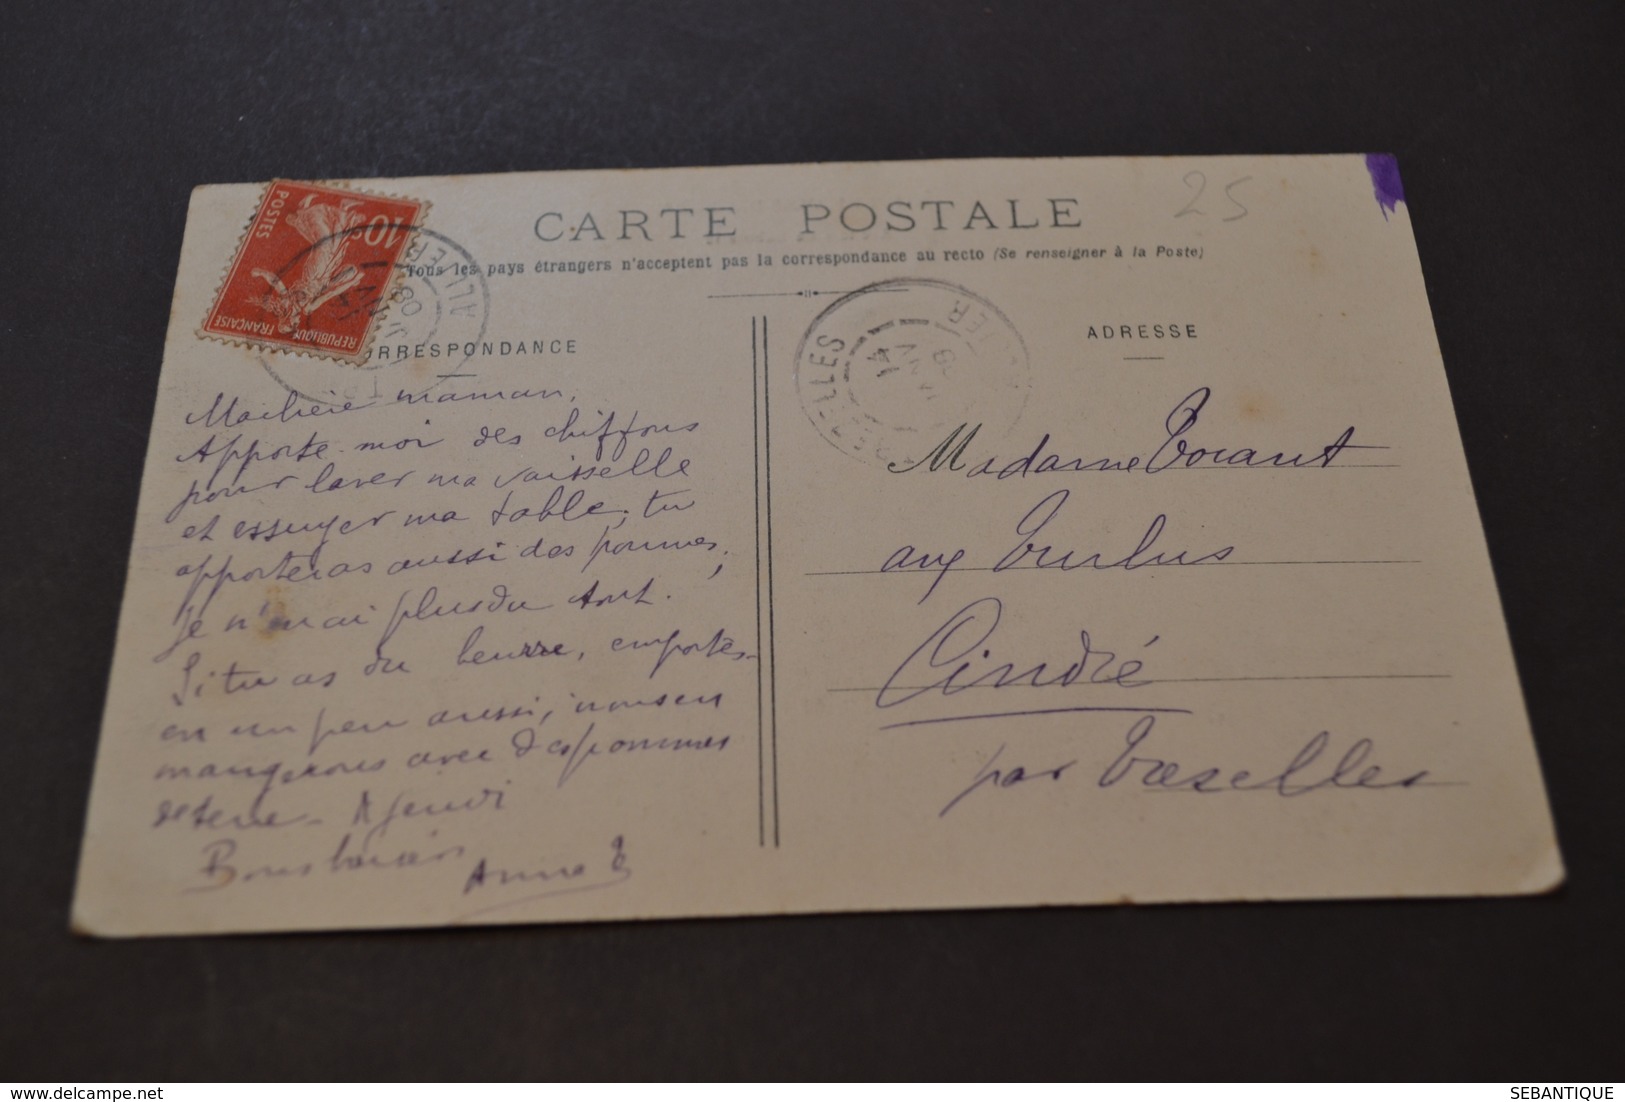 25
CARTE POSTALE
Tous les pays étrangers n'acceptent pas la correspondance au recto (Se renseigner à la Poste)
10c
POSTES
REPUBLIQUE FRANÇAISE
ALLIER
08
CORRESPONDANCE
ADRESSE
14
Ma chère maman,
Apporte-moi des chiffons
pour laver ma vaisselle
et essuyer ma table; tu
apporteras aussi des pommes,
je n'en ai plus du tout.
Si tu as du beurre, emportes-
en un peu aussi, nous en
mangerons avec des pommes
de terre - A jeudi
Bons baisers
Anne
Madame
aux
Cindré
par Treselles
delcampe.net
SEBANTIQUE